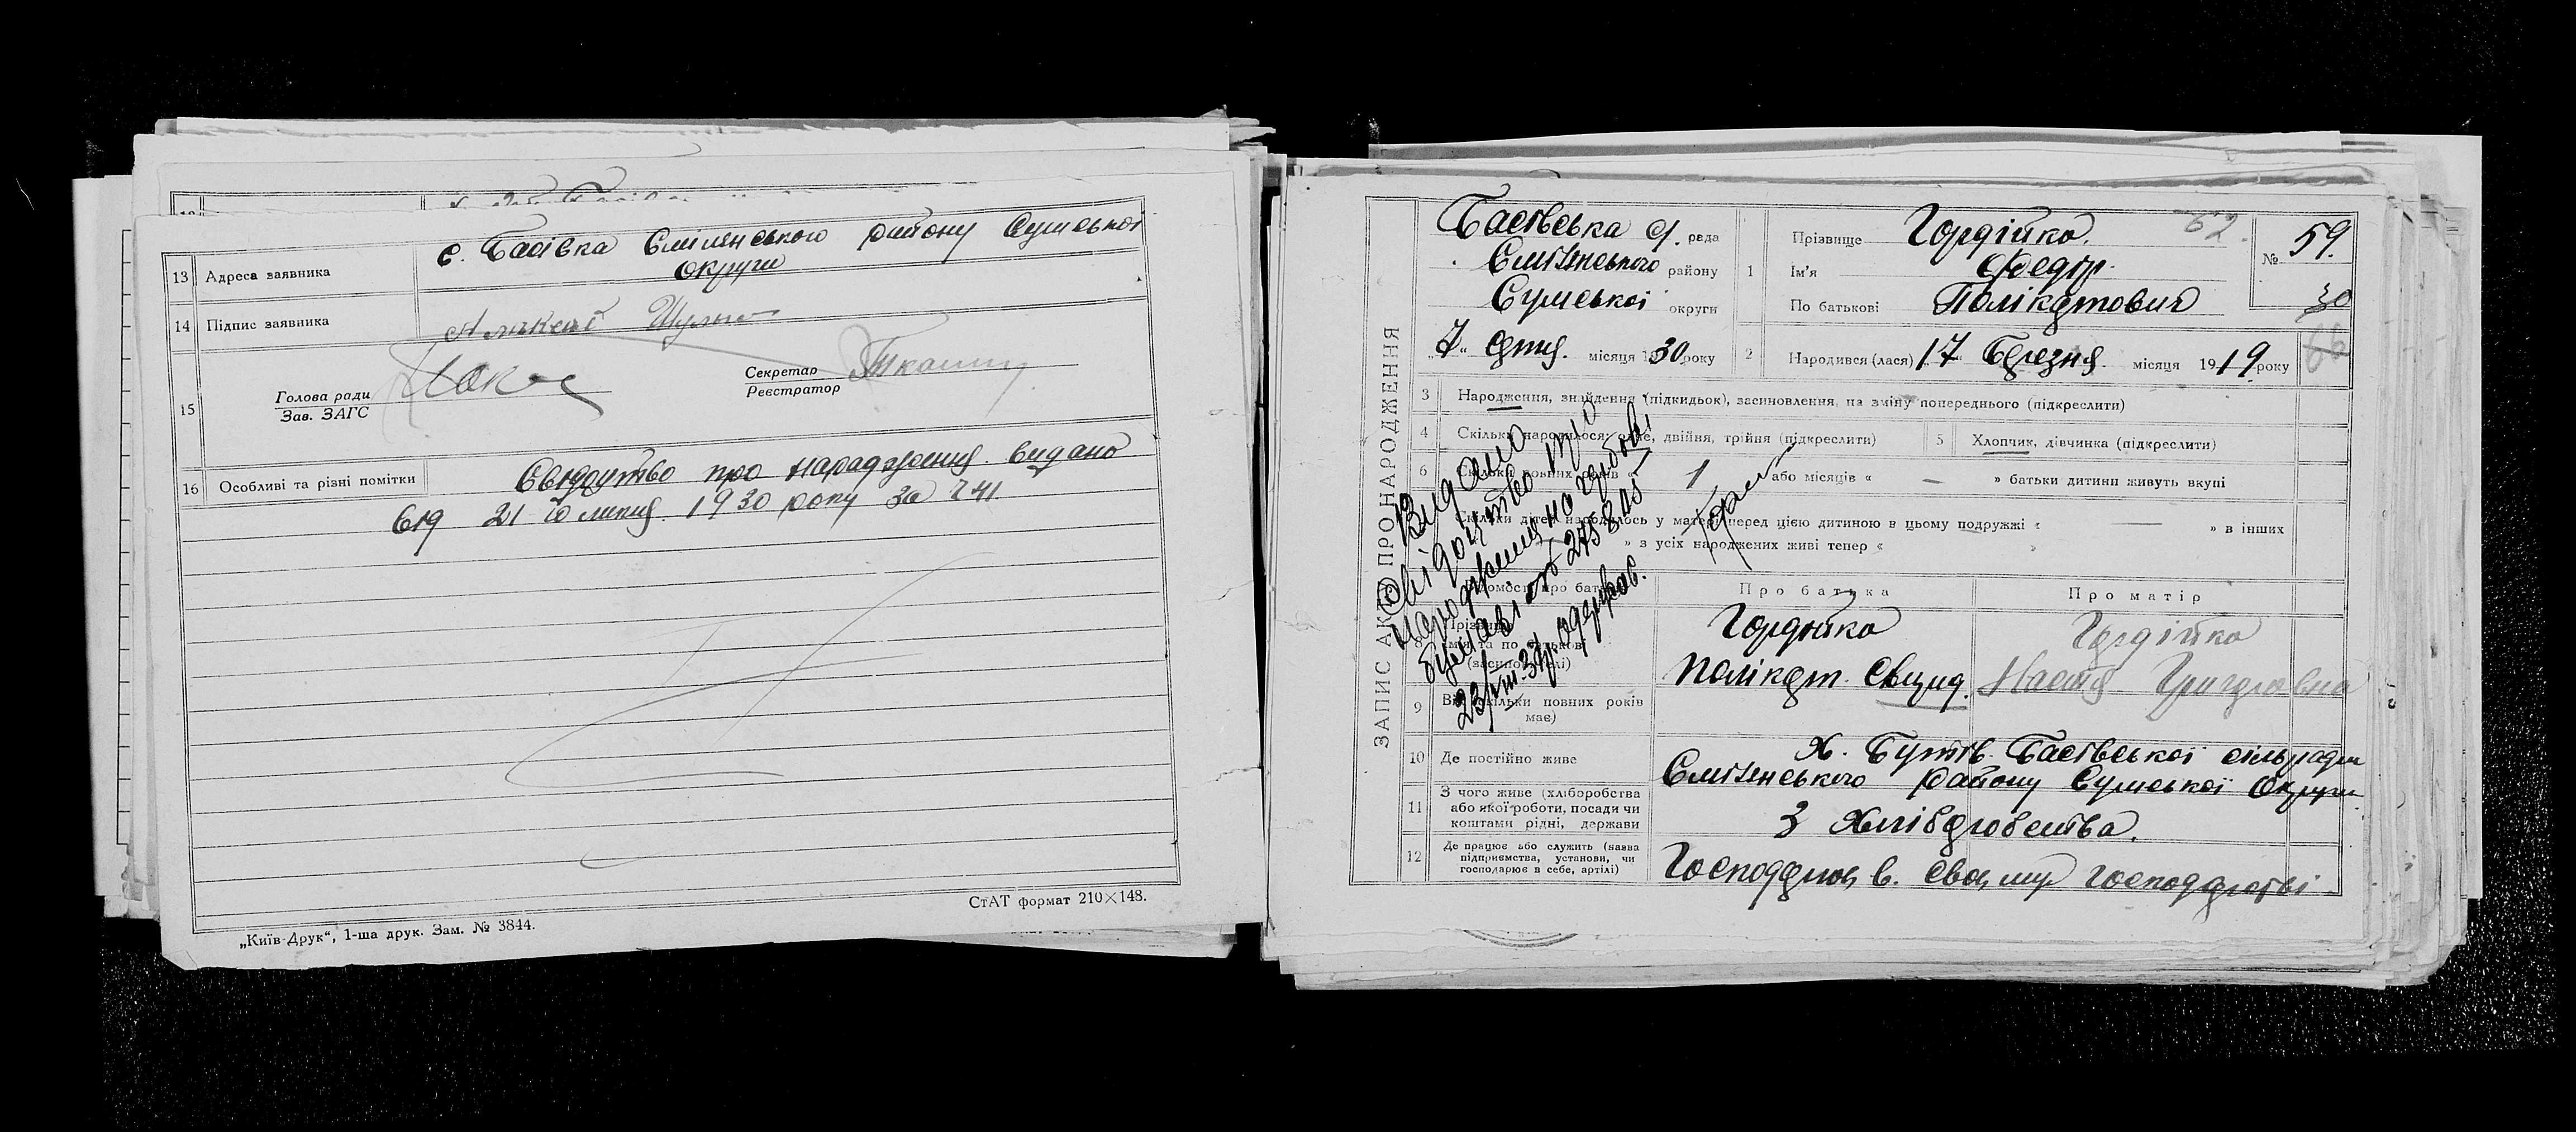 13 Адреса заявника с. Басівка Смілянського району Сумської
округи
14 Підпис заявника
15 Голова ради
Зав. ЗАГС
Секретар
Реєстратор
16 Особливі та різні помітки Свідоцтво про народження видано
21 го липня 1930 року за № 41
„Київ-Друк“, 1-ша друк. Зам. № 3844.
СтАТ формат 210×148.
ЗАПИС АКТІВ ПРО НАРОДЖЕННЯ
Басівська с. рада
Смілянського району
Сумської округи
7 " серпня місяця 1930 року
1 Прізвище Гордійко.
Ім'я Федір
По батькові Полікарпович
62.
№ 59.
30
66
2 Народився (лася) 17 " Березня місяця 1919 року
3 Народження, знайдення (підкидьок), засиновлення, на зміну попереднього (підкреслити)
4 Скільки народилося: одне, двійня, трійня (підкреслити) 5 Хлопчик, дівчинка (підкреслити)
6 Скільки повних років « 1 або місяців « — » батьки дитини живуть вкупі
Скільки дітей народилось у матері перед цією дитиною в цьому подружжі « — » в інших
» з усіх народжених живі тепер « »
Видано
свідоцтво про
народження
№ 275845
23/VIII-37р. одержав.
Про батька Про матір
Гордійко Гордійко
Полікарп Настя Григоровна
9 Вік (скільки повних років
має)
10 Де постійно живе х. Бутів Басівської сільради
Смілянського району Сумської Округи
11 З чого живе (хліборобства
або якої роботи, посади чи
коштами рідні, держави З Хліборобства.
12 Де працює або служить (назва
підприємства, установи, чи
господарює в себе, артілі) Господарює в своєму господарстві